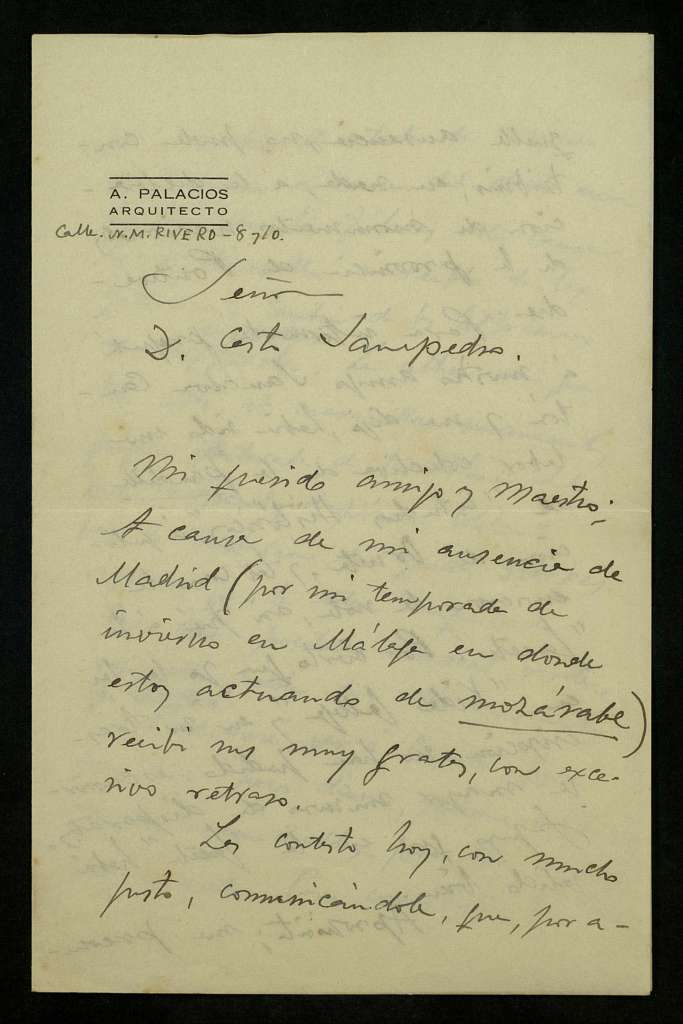 A. PALACIOS
ARQUITECTO
Calle. N.M. RIVERO-8 y 10.
Señor
D. Casto Sampedro.
Mi querido amigo y Maestro:
A causa de mi ausencia de
Madrid (por mi temporada de
invierno en Málaga en donde
estoy actuando de mozárabe)
recibí sus muy gratas, con exce-
sivo retraso.
Les contesto hoy, con mucho
gusto, comunicándole, que, por a-